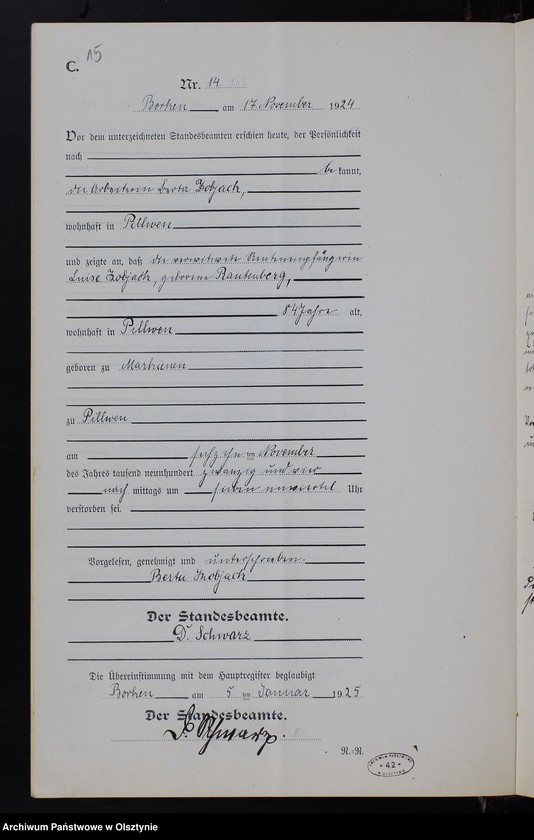 C. 15
Nr. 14
Borken am 17. November 1924
Vor dem unterzeichneten Standesbeamten erschien heute, der Persönlichkeit
nach
bekannt,
die Arbeiterin Berta Zobjack,
wohnhaft in Pillwen
und zeigte an, daß die verwitwete Rentenempfängerin
Luise Zobjack, geborene Rautenberg,
84 Jahre alt,
wohnhaft in Pillwen
geboren zu Markienen
zu Pillwen
am sechzehn ten November
des Jahres tausend neunhundert zwanzig und vier
nach mittags um sieben einviertel Uhr
verstorben sei.
Vorgelesen, genehmigt und unterschrieben.
Berta Zobjack
Der Standesbeamte.
Dr. Schwarz
Die Übereinstimmung mit dem Hauptregister beglaubigt
Borken am 5 ten Januar 1925
Der Standesbeamte.
Dr. Schwarz.
N.-R.
ARCHIWUM PAŃSTWOWE
* 42 *
W OLSZTYNIE
Archiwum Państwowe w Olsztynie